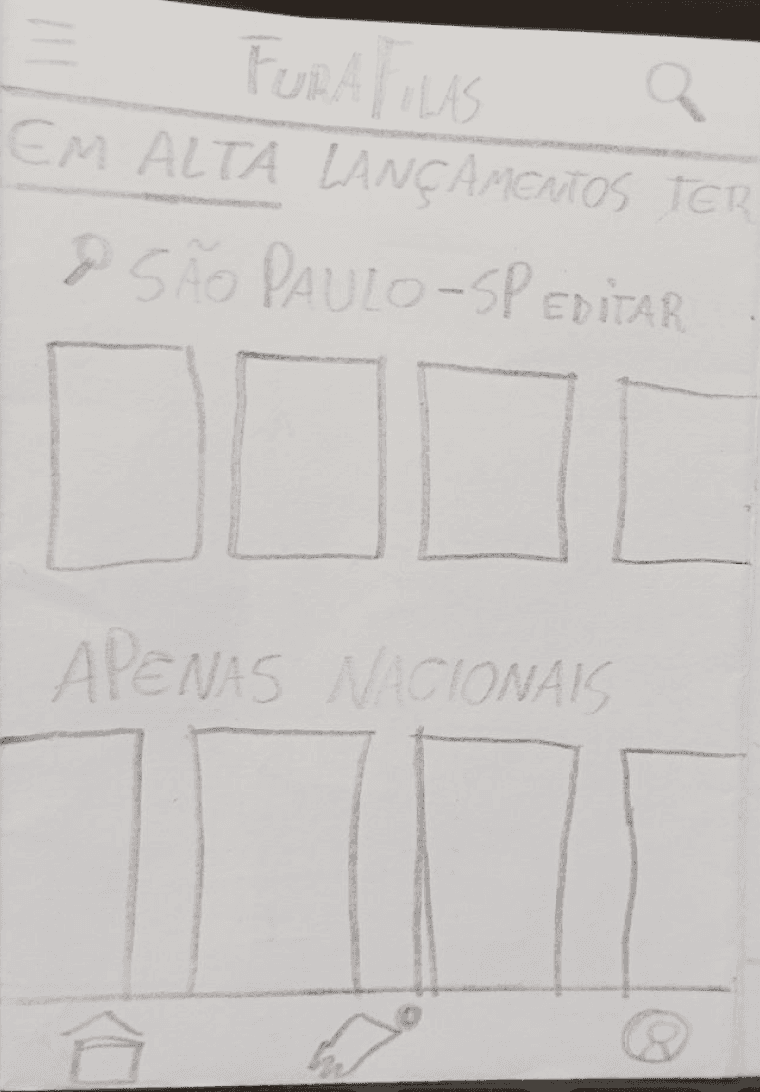 FURAFILAS
EM ALTA LANÇAMENTOS TER
SÃO PAULO-SP EDITAR
APENAS NACIONAIS